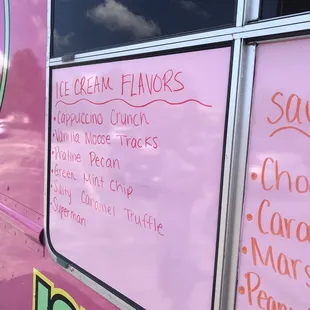 ICE CREAM FLAVORS
• Cappuccino Crunch
• Vanilla Moose Tracks
• Praline Pecan
• Green Mint Chip
• Salty Caramel Truffle
• Superman